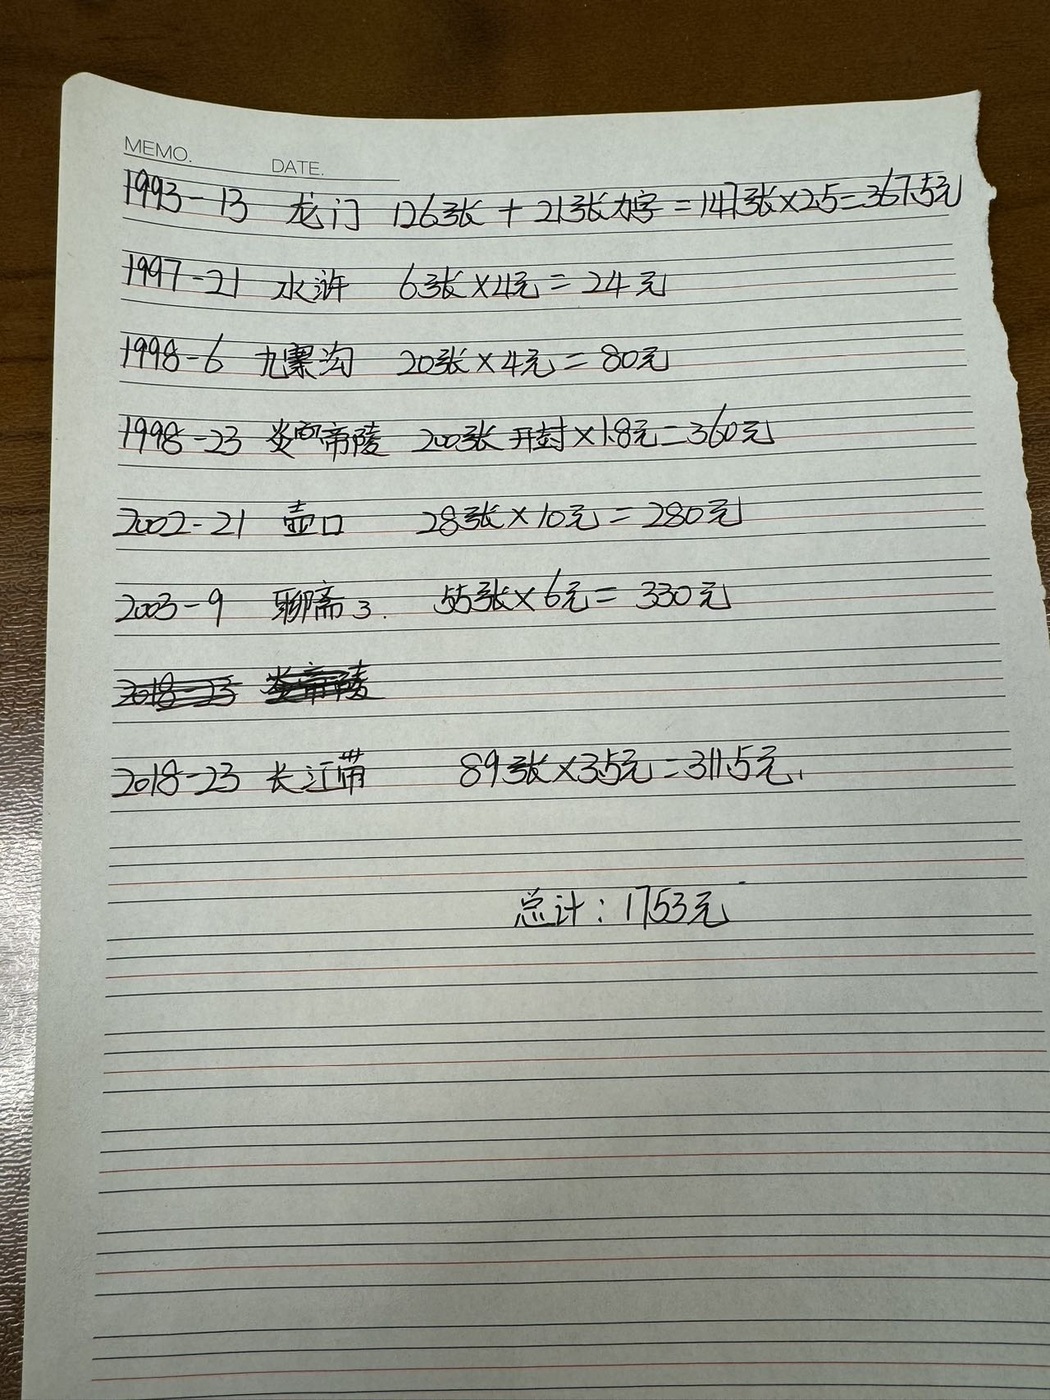 MEMO. DATE.
1993-13 龙门 126张 + 21张加字 = 147张×2.5=367.5元
1997-21 水浒 6张×4元=24元
1998-6 九寨沟 20张×4元=80元
1998-23 炎帝陵 200张 开封×1.8元=360元
2002-21 壶口 28张×10元=280元
2003-9 聊斋3. 55张×6元=330元
2018-23 炎帝陵
2018-23 长江带 89张×3.5元=311.5元.
总计:1753元